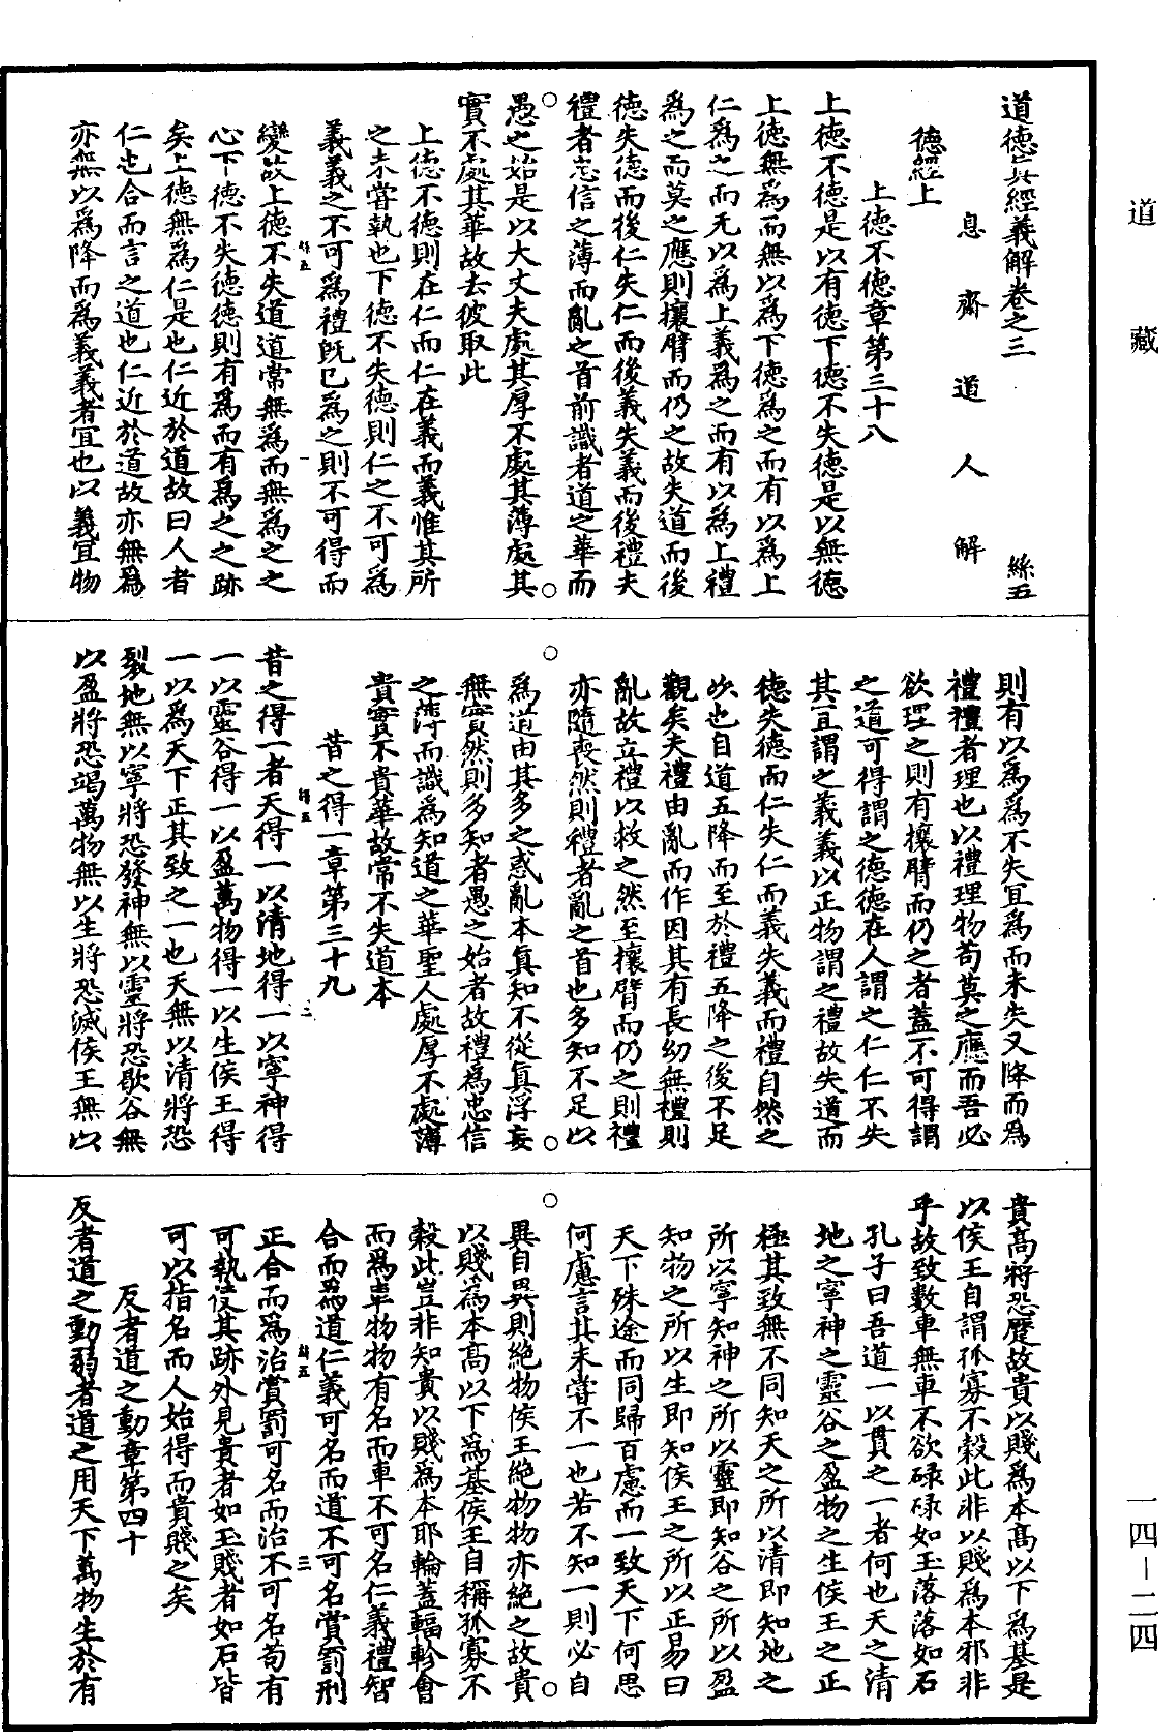 道藏
道德真經義解卷之三 絲五
息齋道人解
德經上
上德不德章第三十八
上德不德是以有德下德不失德是以無德
上德無為而無以為下德為之而有以為上
仁為之而无以為上義為之而有以為上禮
為之而莫之應則攘臂而仍之故失道而後
德失德而後仁失仁而後義失義而後禮夫
禮者忠信之薄而亂之首前識者道之華而
愚之始是以大丈夫處其厚不處其薄處其
實不處其華故去彼取此
上德不德則在仁而仁在義而義惟其所
之未嘗執也下德不失德則仁之不可為
義義之不可為禮旣已為之則不可得而
絲五 一
變故上德不失道道常無為而無為之之
心下德不失德德則有為而有為之之跡
矣上德無為仁是也仁近於道故曰人者
仁也合而言之道也仁近於道故亦無為
亦無以為降而為義義者宜也以義宜物
則有以為為不失宜為而未失又降而為
禮禮者理也以禮理物苟莫之應而吾必
欲理之則有攘臂而仍之者蓋不可得謂
之道可得謂之德德在人謂之仁仁不失
其宜謂之義義以正物謂之禮故失道而
德失德而仁失仁而義失義而禮自然之
次也自道五降而至於禮五降之後不足
觀矣夫禮由亂而作因其有長幼無禮則
亂故立禮以救之然至攘臂而仍之則禮
亦隨喪然則禮者亂之首也多知不足以
為道由其多之惑亂本真知不從真浮妄
無實然則多知者愚之始者故禮為忠信
之薄而識為知道之華聖人處厚不處薄
貴實不貴華故常不失道本
昔之得一章第三十九
絲五 二
昔之得一者天得一以清地得一以寧神得
一以靈谷得一以盈萬物得一以生侯王得
一以為天下正其致之一也天無以清將恐
裂地無以寧將恐發神無以靈將恐歇谷無
以盈將恐竭萬物無以生將恐滅侯王無以
貴高將恐蹷故貴以賤為本高以下為基是
以侯王自謂孤寡不穀此非以賤為本邪非
乎故致數車無車不欲琭琭如玉落落如石
孔子曰吾道一以貫之一者何也天之清
地之寧神之靈谷之盈物之生侯王之正
極其致無不同知天之所以清即知地之
所以寧知神之所以靈即知谷之所以盈
知物之所以生即知侯王之所以正易曰
天下殊途而同歸百慮而一致天下何思
何慮言其未嘗不一也若不知一則必自
異自異則絕物侯王絕物物亦絕之故貴
以賤為本高以下為基侯王自稱孤寡不
穀此豈非知貴以賤為本耶輪蓋輻軫會
而為車物物有名而車不可名仁義禮智
合而為道仁義可名而道不可名賞罰刑
絲五 三
正合而為治賞罰可名而治不可名苟有
可執使其跡外見貴者如玉賤者如石皆
可以指名而人始得而貴賤之矣
反者道之動章第四十
反者道之動弱者道之用天下萬物生於有
一四—二四